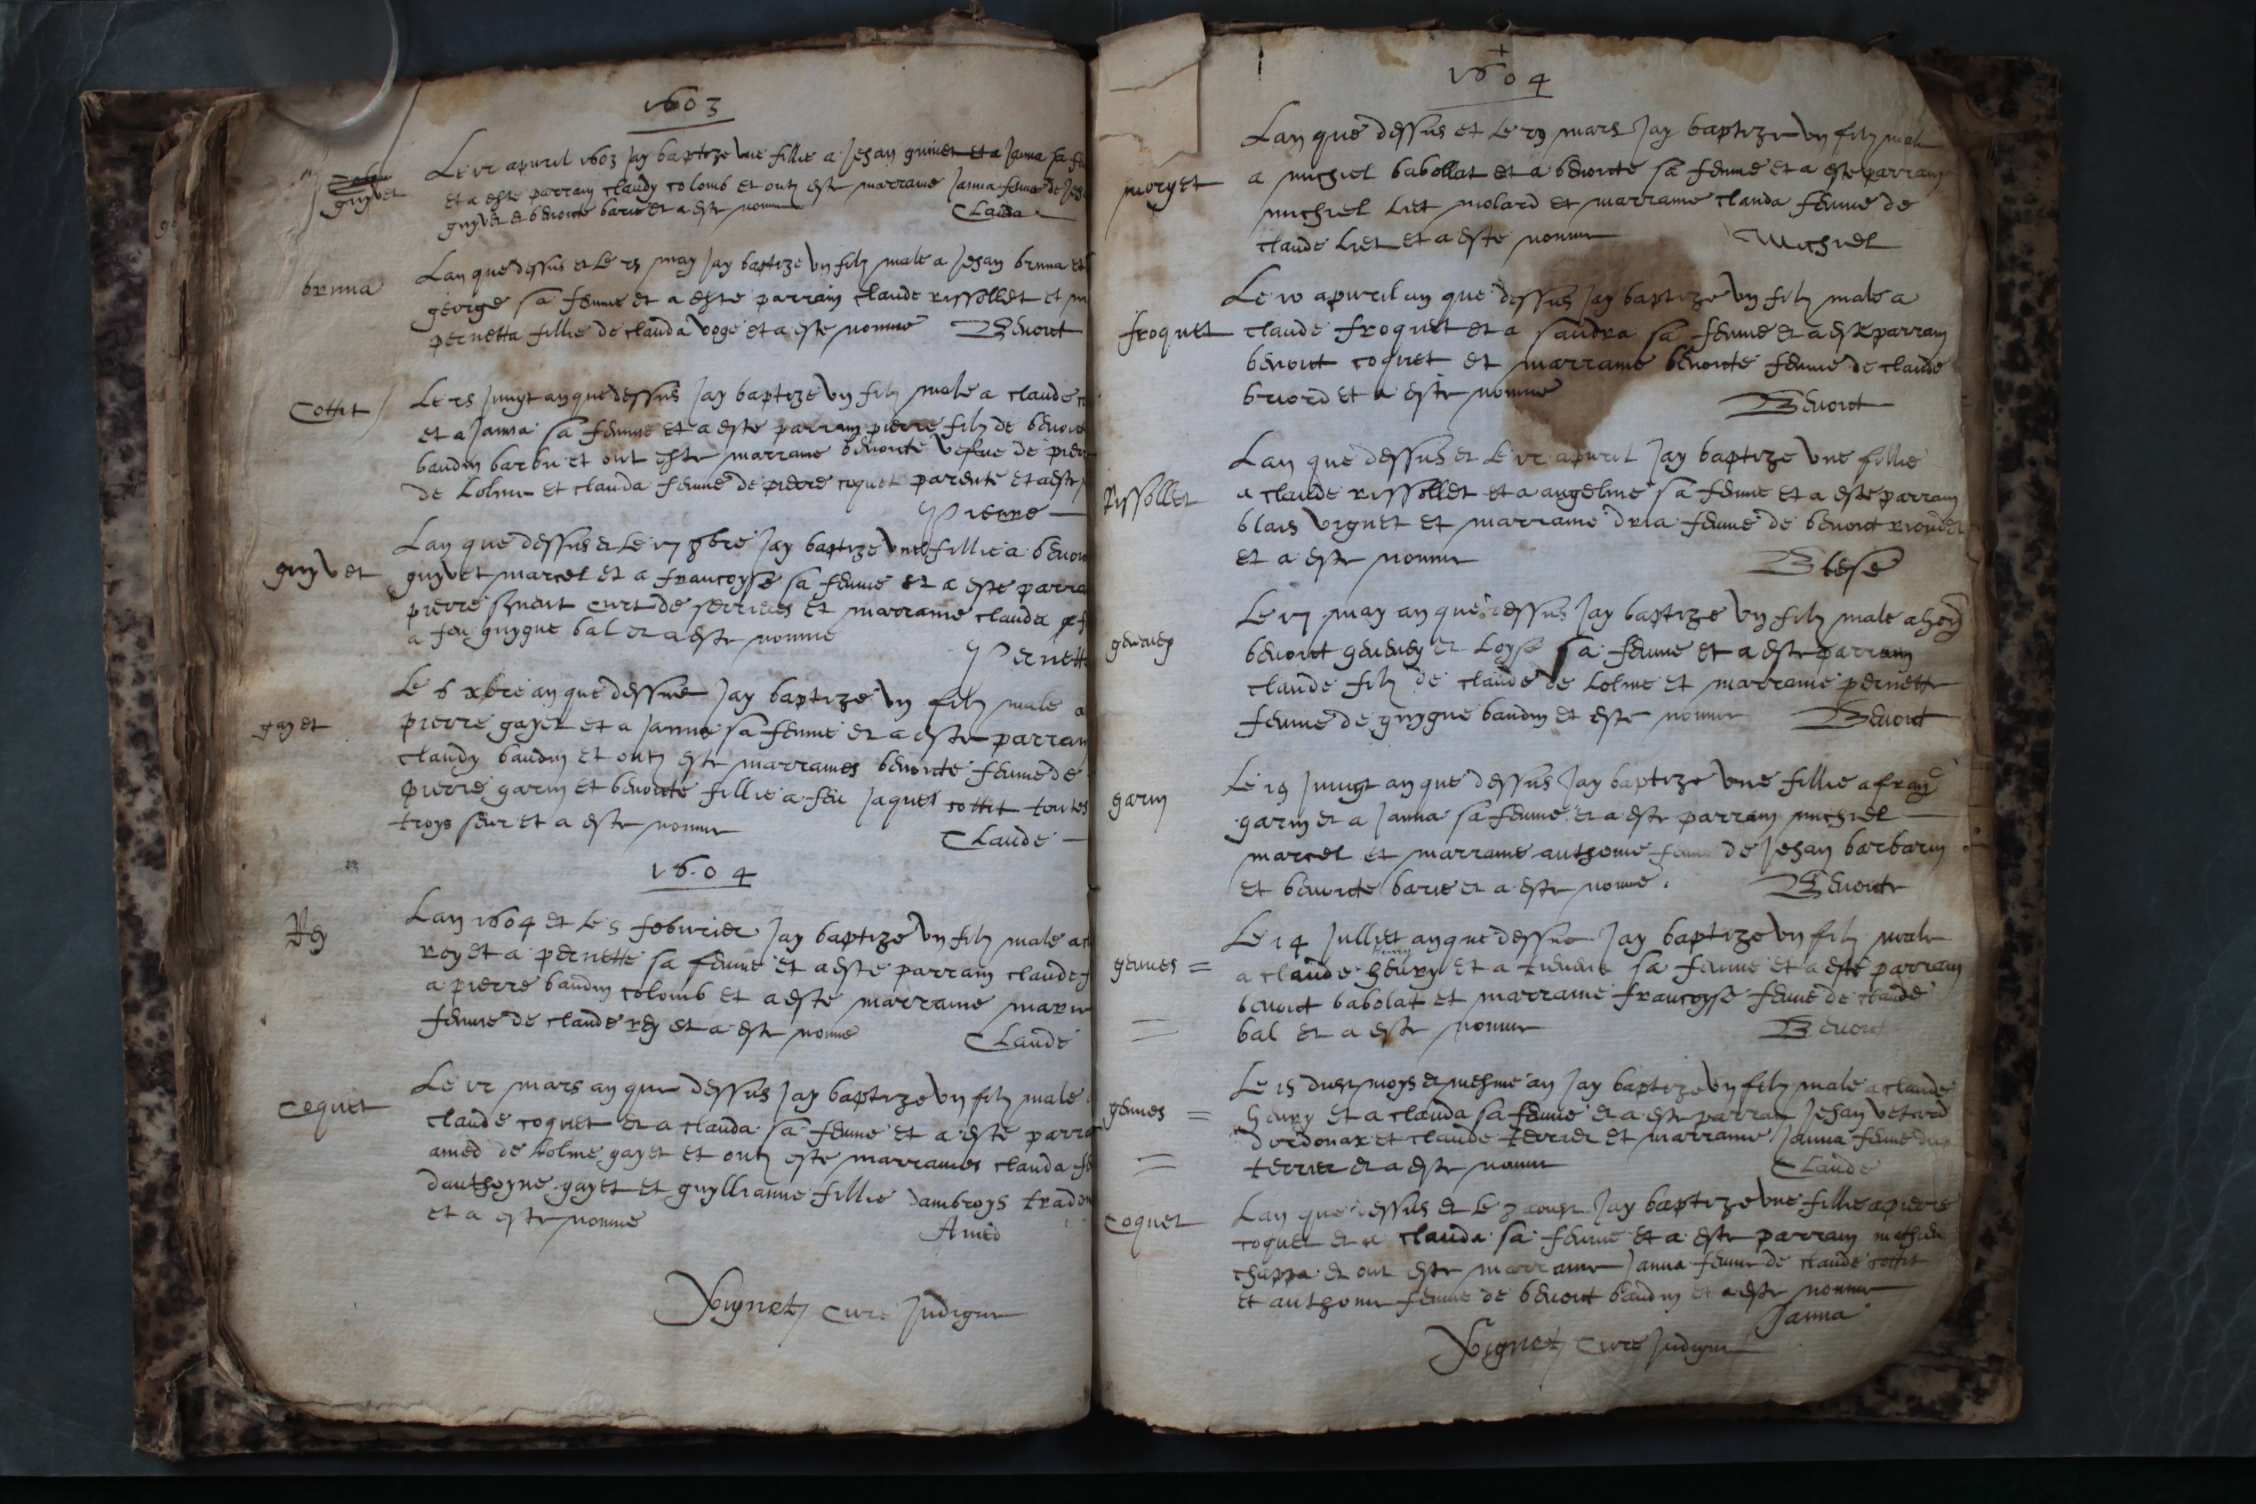 1603
guyvet
Le apvril 1603 Jay baptize une fillie a Jehan guivet et a Janna sa
et a este parrain claudy colomb et ont este marrame Janna femme de
guyvet et benoite barie et a este nomme Clauda
bruna
Lan que dessus et le may Jay baptize un filz male a Jehan bruna et
george sa femme et a este parrain claude rissollet et
pernetta fillie de clauda voge et a este nomme Benoict
Cottit
Le 25 Jung an que dessus Jay baptize un filz male a claude
et a Janna sa femme et a este parrain pierre filz de benoict
baudin barbu et ont este marrame benoite vefue de pierre
de Lolme et clauda femme de pierre coquet parente et a este
Pierre
guyvet
Lan que dessus et le 17 8bre Jay baptize une fillie a benoict
guyvet marcel et a francoyse sa femme et a este parra
pierre curé de serrieres et marrame clauda
a feu guygue bal et a este nomme
Pernett
gayet
Le 6 xbre an que dessus Jay baptize un filz male a
pierre gayet et a Janna sa femme et a este parrain
claudy baudin et ont este marrames benoite femme de
pierre garin et benoite fillie a feu Jaques cottit toutes
troys seur et a este nomme
Claude
1604
Rey
Lan 1604 et le 5 febvrier Jay baptize un filz male a
rey et a pernette sa femme et a este parrain claude
a pierre baudin colomb et a este marrame marie
femme de claude rey et a este nomme Claude
coquet
Le mars an que dessus Jay baptize un filz male
claude coquet et a clauda sa femme et a este parra
amed de Lolme gayet et ont este marrames clauda
danthoyne gayet et guyllianne fillie dambroys
et a este nomme Amed
Vignet curé Indigne
1604
moryet
Lan que dessus et le 29 mars Jay baptize un filz male
a michiel babollat et a benoicte sa femme et a este parrain
michiel Liet molard et marrame clauda femme de
claude Liet et a este nomme Michiel
froquet
Le 10 apvril an que dessus Jay baptize un filz male a
claude froquet et a sandra sa femme et a este parrain
benoict coquet et marrame benoite femme de claude
briord et a este nomme
Benoict
Rissollet
Lan que dessus et le apvril Jay baptize une fillie
a claude rissollet et a angeline sa femme et a este parrain
blais vignet et marrame femme de benoict
et a este nomme Blese
geneney
Le 17 may an que dessus Jay baptize un filz male a
benoict geneney et Loyse sa femme et a este parrain
claude filz de claude de Lolme et marrame pernette
femme de guygue baudin et este nomme Benoict
garin
Le 19 Jungt an que dessus Jay baptize une fillie a
garin et a Janna sa femme et a este parrain michiel
marcel et marrame anthonie femme de Jehan barbarin
et benoicte barie et a este nomme. Benoicte
gennes =
Le 14 Julliet an que dessus Jay baptize un filz male
a claude henry et a sa femme et a este parrain
benoict babolat et marrame francoyse femme de claude
bal et a este nomme Benoict
gennes =
Le 15 dud moys et mesme an Jay baptize un filz male a claude
henry et a clauda sa femme et a este parrain Jehan
dordonax et claude terrier et marrame Janna femme
terrier et a este nomme Claude
Coquet
Lan que dessus et le aoust Jay baptize une fillie a pierre
coquet et a clauda sa femme et a este parrain mathieu
chappa et ont este marrame Janna femme de claude cottit
et anthonie femme de benoict baudin et a este nomme
Janna
Vignet curé Indigne